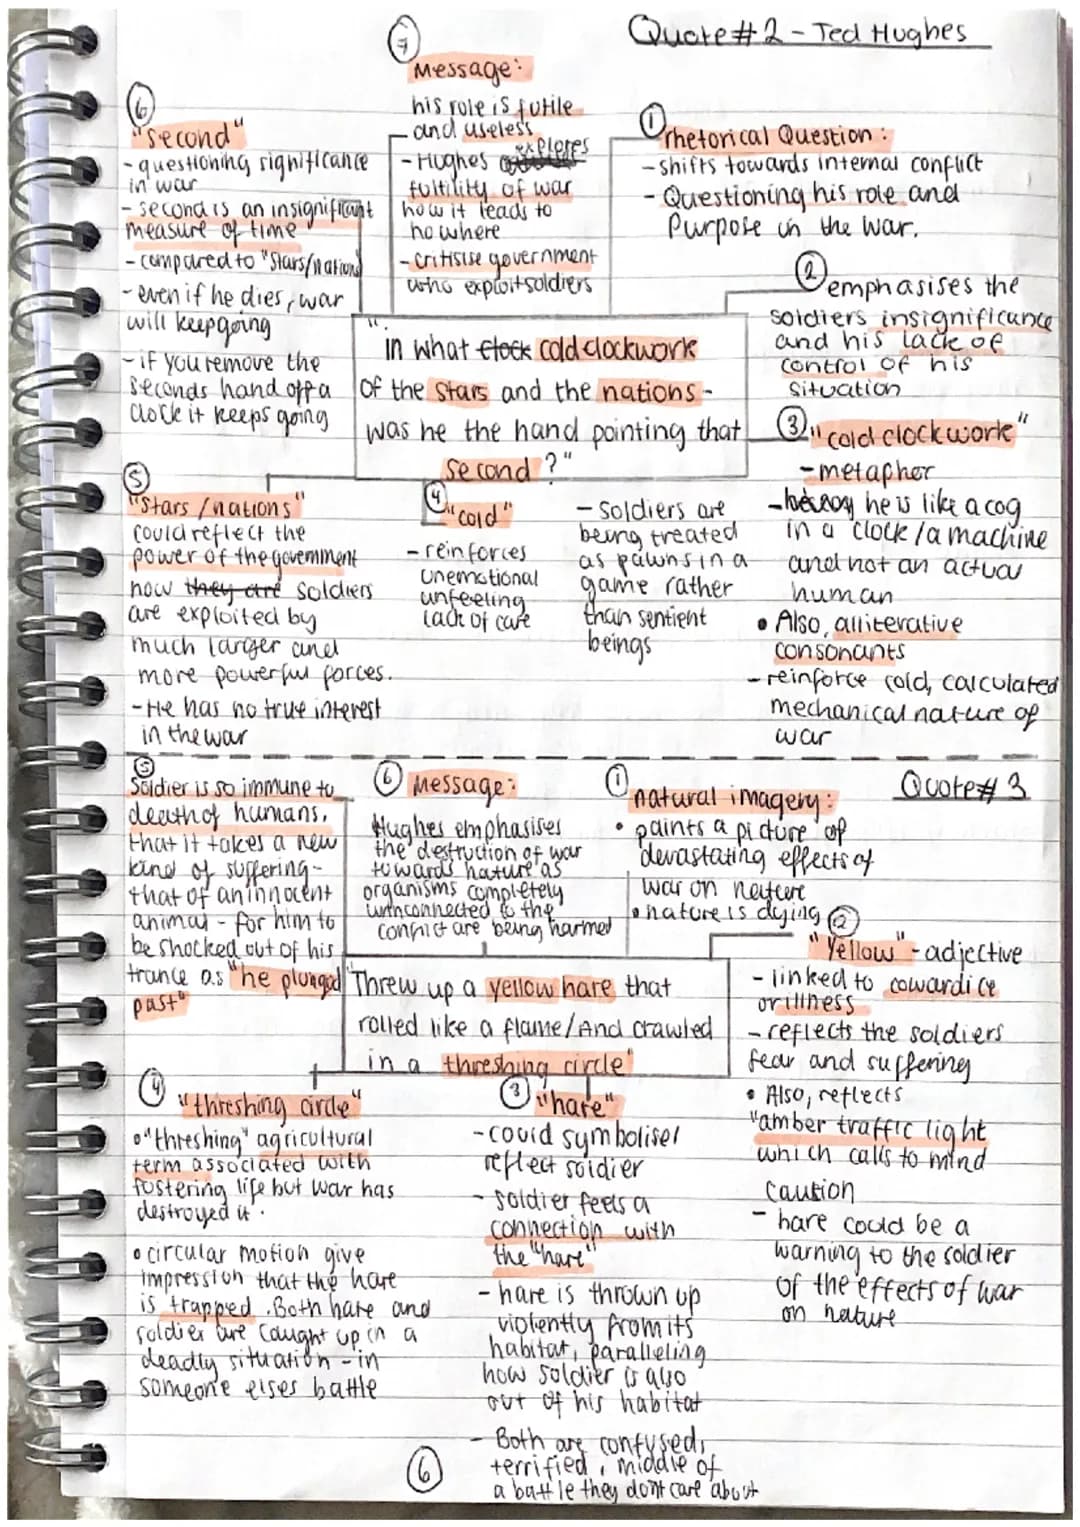 Quote #2 - Ted Hughes
⑦
Message:
his role is futile
and useless
- Hughes explores
fultility of war
how it leads to
nowhere
- critisise government
who exploit soldiers
⑥
"second"
- questioning significance
in war
- second is an insignificant
measure of time
- compared to "stars/nations
- even if he dies, war
will keep going
- if you remove the
seconds hand off a
clock it keeps going
①
rhetorical Question:
- shifts towards internal conflict
- Questioning his role and
Purpose in the war.
②
emphasises the
soldiers insignificance
and his lack of
control of his
situation
"in what clock cold clockwork
of the stars and the nations -
was he the hand pointing that
second?"
③
"cold clockwork"
- metapher
- he is like a cog
in a clock / a machine
and not an actual
human
• Also, alliterative
consonants
- reinforce cold, calculated
mechanical nature of
war
④
"cold"
- reinforces
unemotional
unfeeling
lack of care
- Soldiers are
being treated
as pawns in a
game rather
than sentient
beings
⑤
"Stars / nations"
could reflect the
power of the government
how they are soldiers
are exploited by
much larger and
more powerful forces.
- He has no true interest
in the war
Quote #3
⑤
Soldier is so immune to
death of humans,
that it takes a new
kind of suffering -
that of an innocent
animal - for him to
be shocked out of his
trance as "he plunged
past"
⑥
Message:
Hughes emphasises
the destruction of war
towards nature as
organisms completely
unconnected to the
conflict are being harmed
①
natural imagery:
• paints a picture of
devastating effects of
war on nature
• nature is dying
②
"Yellow" - adjective
- linked to cowardice
or illness
- reflects the soldiers
fear and suffering
• Also, reflects
"amber traffic light
which calls to mind
caution
- hare could be a
warning to the soldier
of the effects of war
on nature
"Threw up a yellow hare that
rolled like a flame/And crawled
in a threshing circle"
④
"threshing circle"
• "threshing" agricultural
term associated with
fostering life but war has
destroyed it.
• circular motion give
impression that the hare
is trapped. Both hare and
soldier are caught up in a
deadly situation - in
someone elses battle
③
"hare"
- could symbolise/
reflect soldier
- soldier feels a
connection with
the "hare"
- hare is thrown up
violently from its
habitat, paralleling
how soldier is also
out of his habitat
- Both are confused,
terrified, middle of
a battle they don't care about
⑥